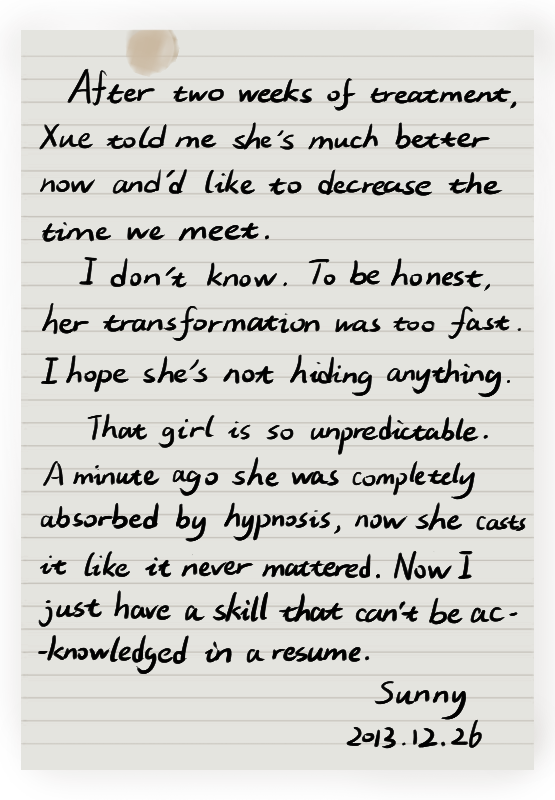 After two weeks of treatment,
Xue told me she's much better
now and'd like to decrease the
time we meet.
I don't know. To be honest,
her transformation was too fast.
I hope she's not hiding anything.
That girl is so unpredictable.
A minute ago she was completely
absorbed by hypnosis, now she casts
it like it never mattered. Now I
just have a skill that can't be ac-
-knowledged in a resume.
Sunny
2013.12.26